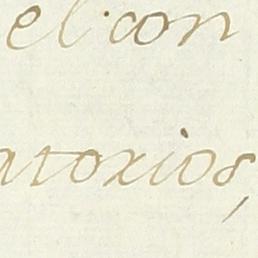 el con
atorios,